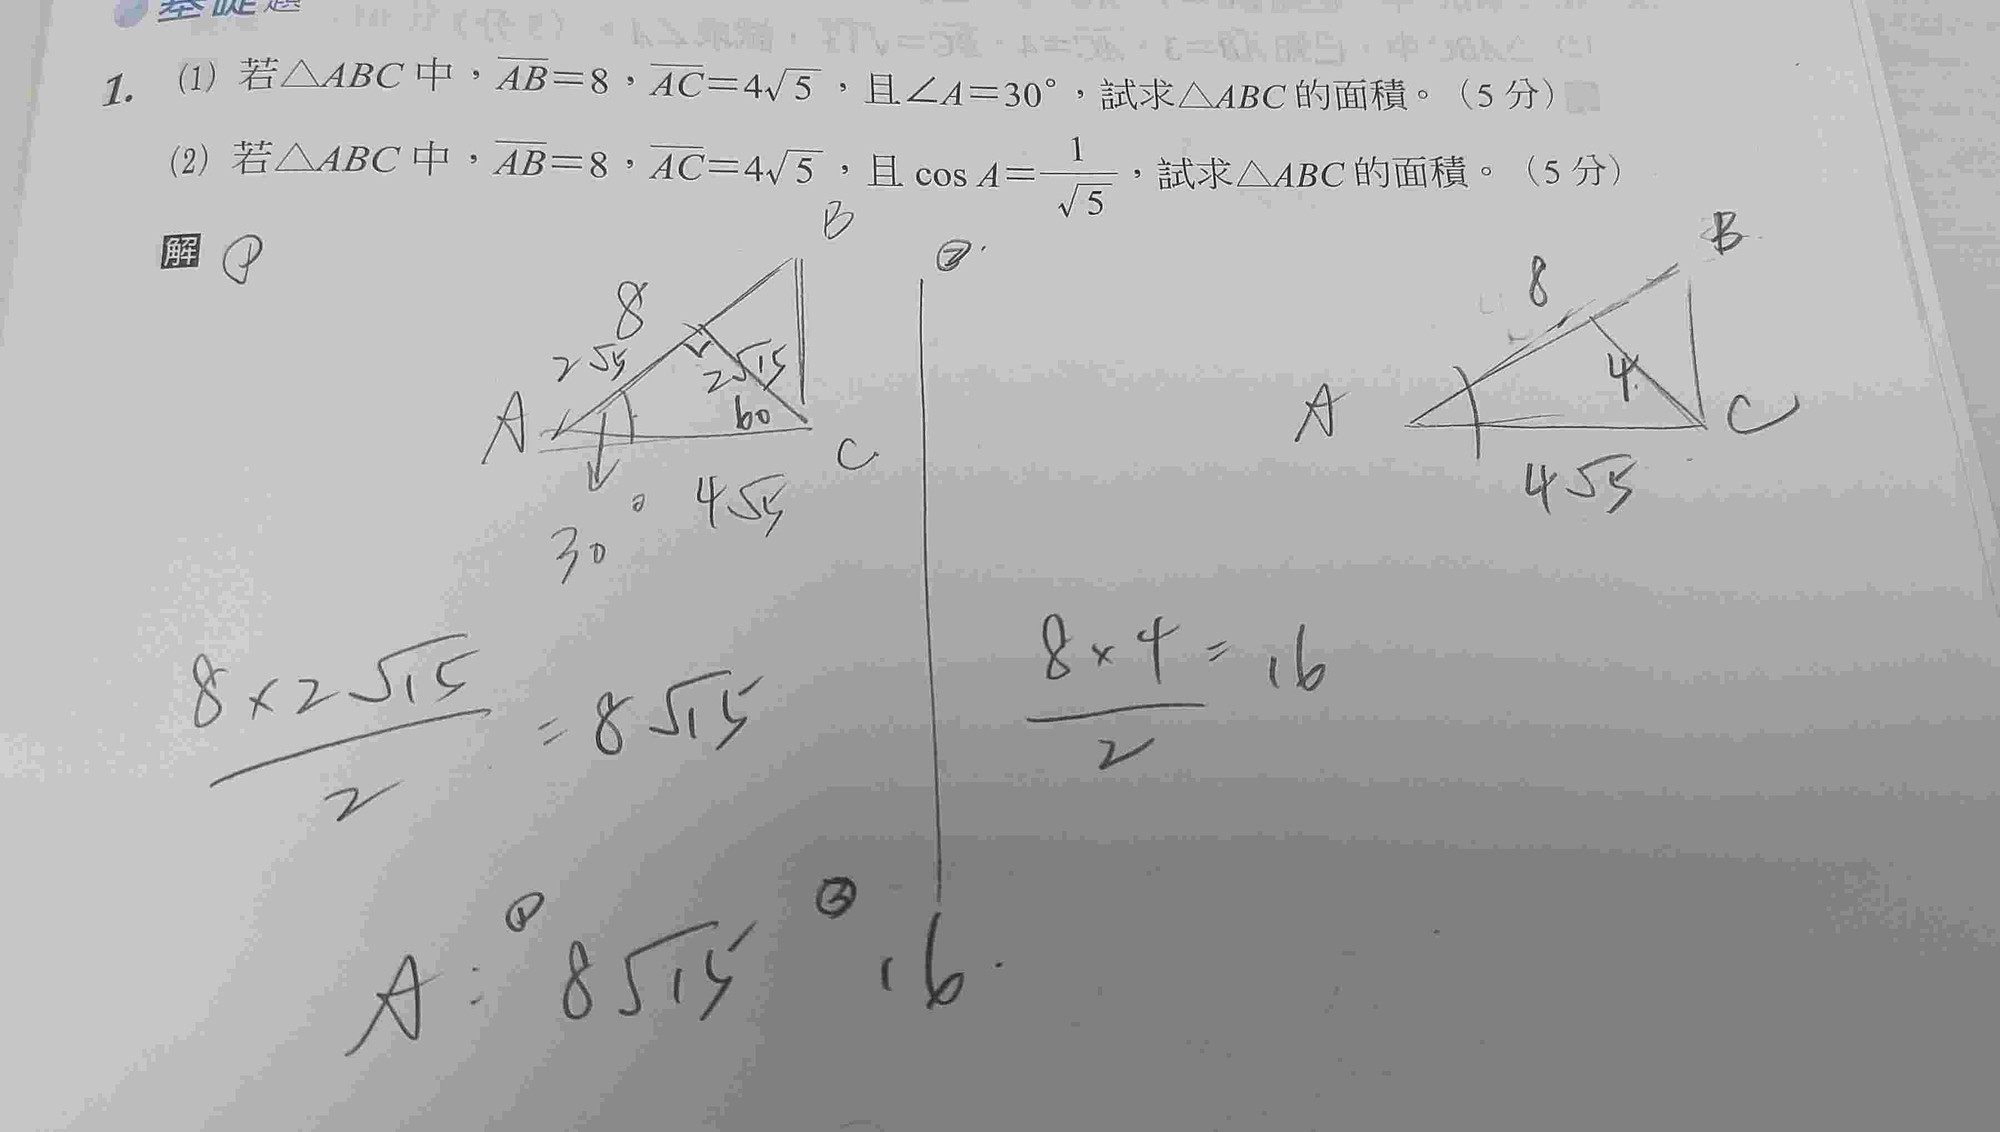 基礎題
1. (1) 若△ABC中，AB=8，AC=4√5，且∠A=30°，試求△ABC的面積。（5分）
(2) 若△ABC中，AB=8，AC=4√5，且 cos A=1/√5，試求△ABC的面積。（5分）
解 ①
B
8
2√5
2√15
A
60
C
30°
4√5
②
B
8
A
4
C
4√5
8×2√15/2 = 8√15
8×4/2 = 16
A: ① 8√15 ② 16.